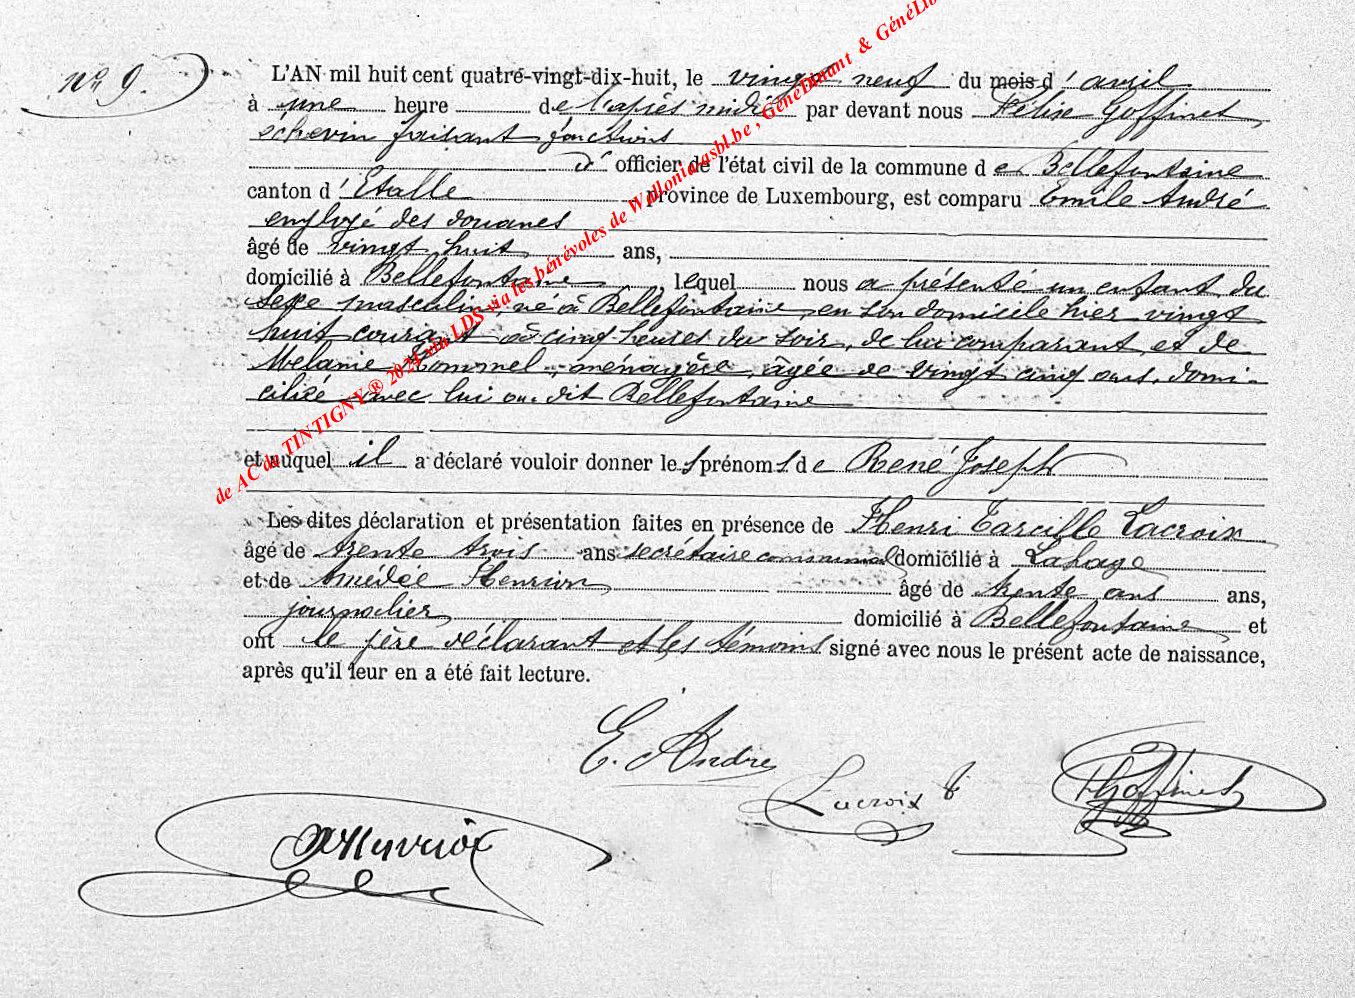 N° 9.
L'AN mil huit cent quatre-vingt-dix-huit, le vingt neuf du mois d'avril
à une heure de l'après midi par devant nous Félise Goffinet,
échevin faisant fonctions
d' officier de l'état civil de la commune de Bellefontaine
canton d'Etalle province de Luxembourg, est comparu Emile André
employé des douanes
âgé de vingt huit ans,
domicilié à Bellefontaine, lequel nous a présenté un enfant du
sexe masculin, né à Bellefontaine, en son domicile hier vingt
huit courant à cinq heures du soir, de lui comparant, et de
Mélanie ménagère, âgée de vingt cinq ans, domi-
ciliée avec lui au dit Bellefontaine
et auquel il a déclaré vouloir donner les prénoms de René Joseph
Les dites déclaration et présentation faites en présence de Henri Tarcille Lacroix
âgé de trente trois ans secrétaire communal domicilié à Lahage
et de Amédée Henrion âgé de trente ans ans,
journalier domicilié à Bellefontaine et
ont le père déclarant et les témoins signé avec nous le présent acte de naissance,
après qu'il leur en a été fait lecture.
E. André
Lacroix
Goffinet
Henrion
de AC de TINTIGNY® 2024 via LDS via les bénévoles de Wallonia-asbl.be, GénéDinant & GénéLux